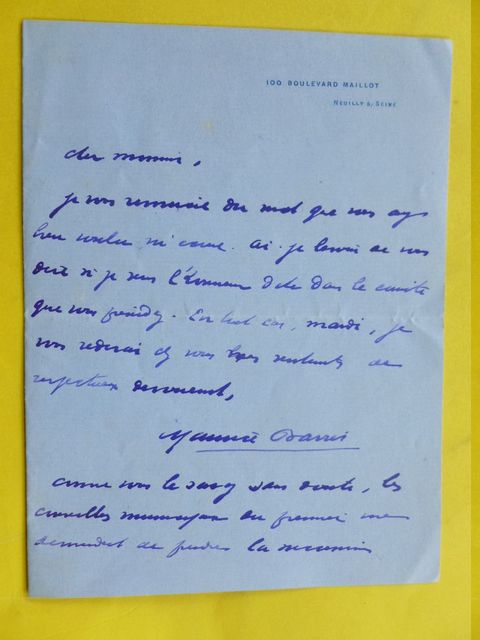 100 BOULEVARD MAILLOT
NEUILLY S/ SEINE
cher monsieur,
je vous remercie du mot que vous avez
bien voulu m'écrire. ai-je besoin de vous
dire si je sens l'honneur d'être dans le comité
que vous présidez. En tout cas, mardi, je
vous redirai chez vous mes sentiments de
respectueux dévouement,
Maurice Barrès
comme vous le savez sans doute, les
conseillers municipaux du premier
demandent de la